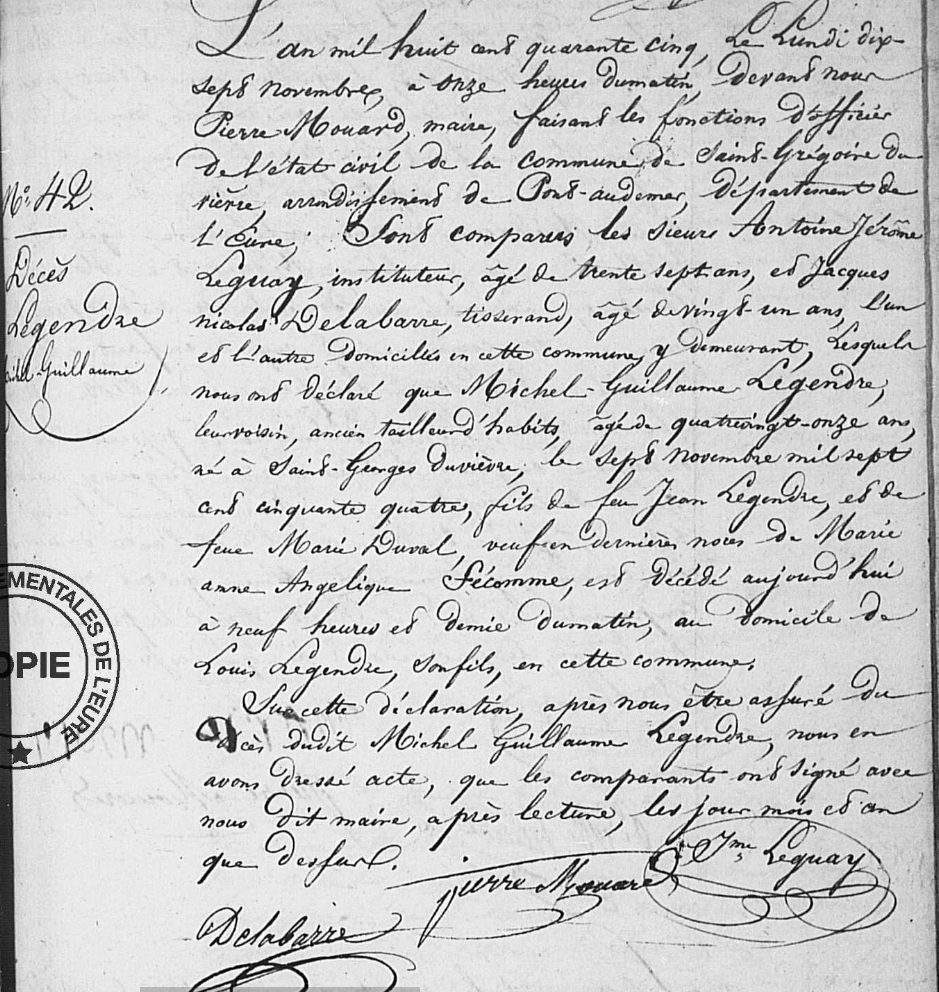 L'an mil huit cent quarante cinq, Le Lundi dix-
sept novembre, à onze heures du matin, devant nous
Pierre Mouard, maire, faisant les fonctions d'officier
de l'état civil de la commune de Saint-Grégoire du
vièvre, arrondissement de Pont-audemer, département de
l'Eure, Sont comparus les sieurs Antoine Jérôme
Leguay, instituteur, âgé de trente sept ans, et Jacques
nicolas Delabarre, tisserand, âgé de vingt-un ans, l'un
et l'autre domiciliés en cette commune, y demeurant, Lesquels
nous ont déclaré que Michel-Guillaume Legendre,
leur voisin, ancien tailleur d'habits, âgé de quatrevingt-onze ans,
né à Saint-Georges Duvièvre, le sept novembre mil sept
cent cinquante quatre, fils de feu Jean Legendre, et de
feue Marie Duval, veuf en dernières noces de Marie
anne Angelique Fécomme, est décédé aujourd'hui
à neuf heures et demie du matin, au domicile de
Louis Legendre, son fils, en cette commune.
Sur cette déclaration, après nous être assuré du
décès dudit Michel Guillaume Legendre, nous en
avons dressé acte, que les comparants ont signé avec
nous dit maire, après lecture, les jour mois et an
que dessus.
Pierre Mouard
Jme Leguay
Delabarre
N° 42.
Décès
Legendre
Michel-Guillaume
EMENTALES DE L'EURE
OPIE